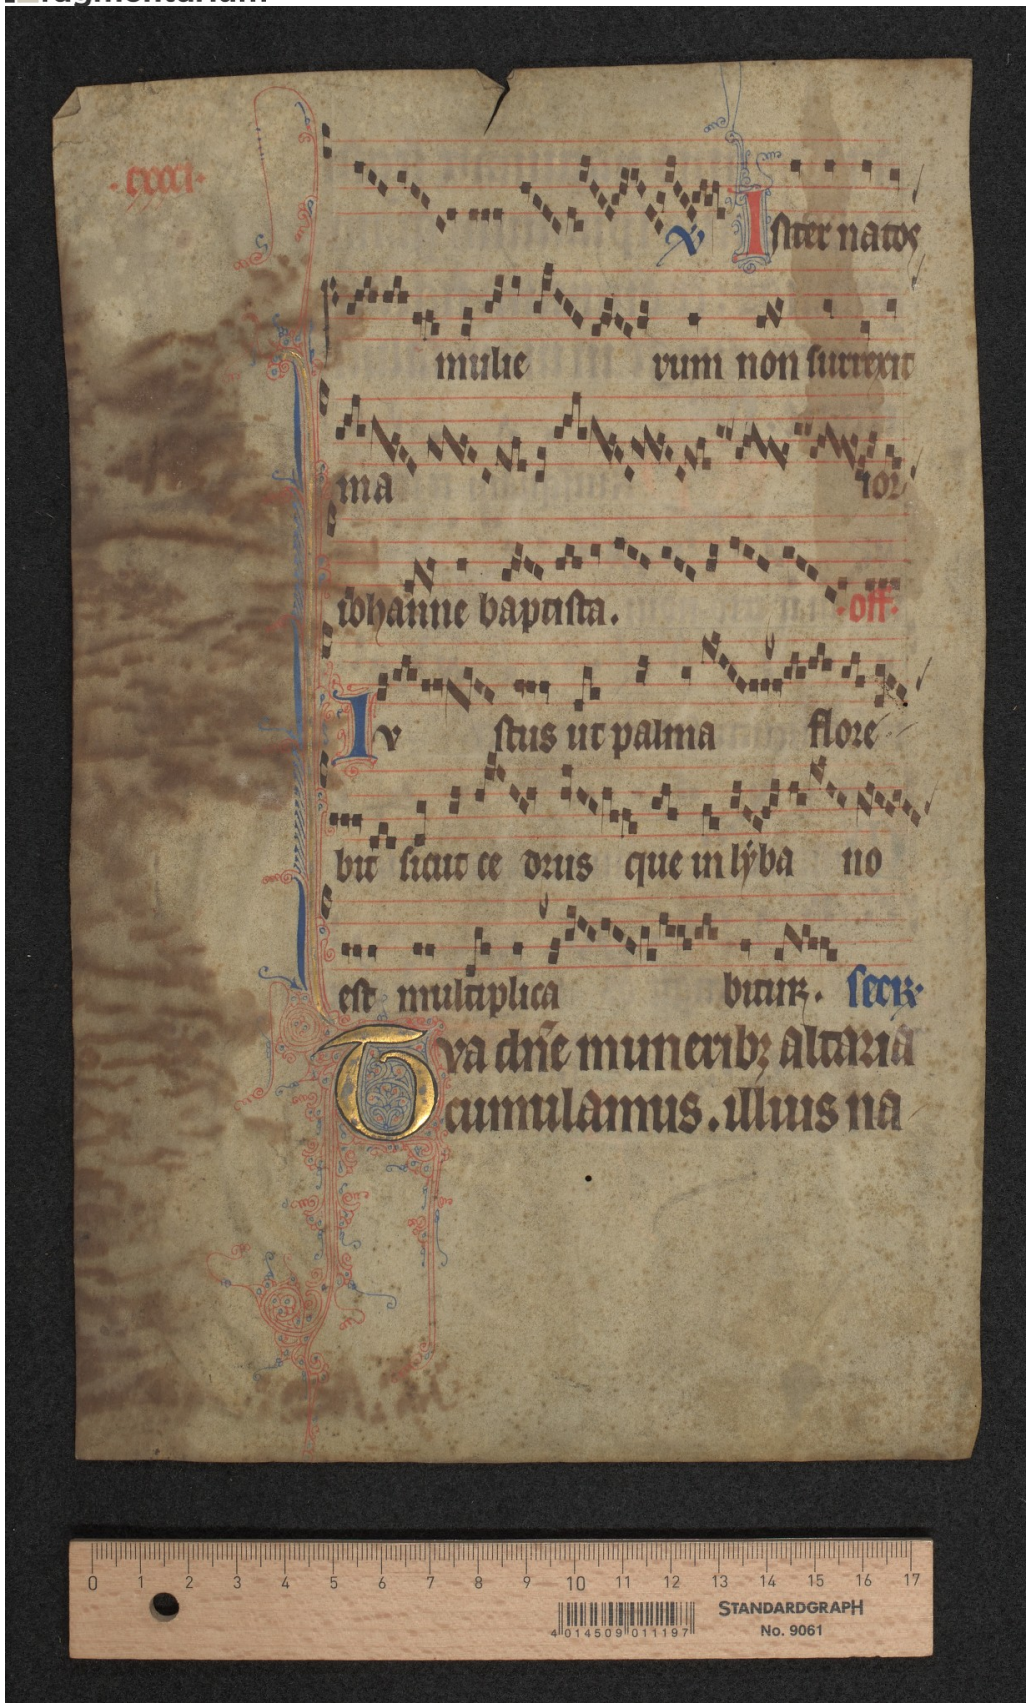 ·cxxxi·
℣ Inter natos
mulie rum non surrexit
ma ior
iohanne baptista. ·off·
Iv stus ut palma flore
bit sicut ce drus que in lÿba no
est multiplica bitur. secr̃
Tva dn̄e munerib; altaria
cumulamus. illius na
0 1 2 3 4 5 6 7 8 9 10 11 12 13 14 15 16 17
STANDARDGRAPH
No. 9061
4 014509 011197